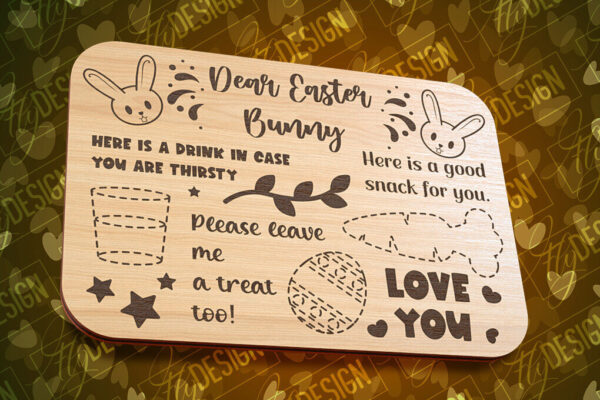 Dear Easter
Bunny
HERE IS A DRINK IN CASE
YOU ARE THIRSTY
Here is a good
snack for you.
Please leave
me
a treat
too!
LOVE
YOU
FlyDESIGN